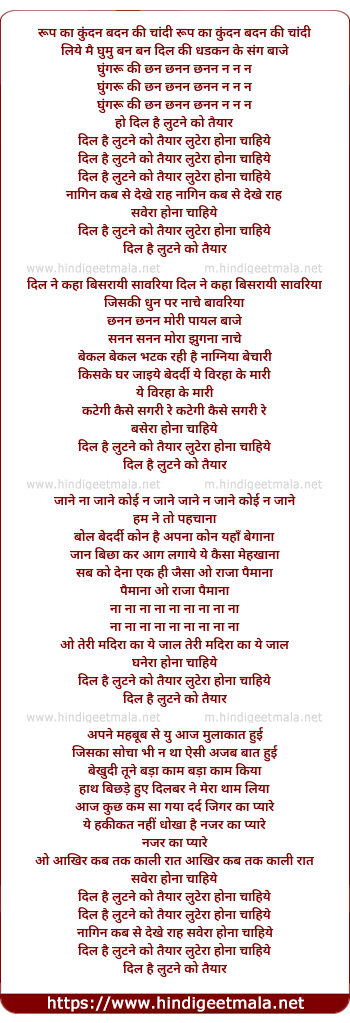 रूप का कुंदन बदन की चांदी रूप का कुंदन बदन की चांदी
लिये मै घुमु बन बन दिल की धडकन के संग बाजे
घुंगरू की छन छनन छनन न न न
घुंगरू की छन छनन छनन न न न
घुंगरू की छन छनन छनन न न न
हो दिल है लुटने को तैयार
दिल है लुटने को तैयार लुटेरा होना चाहिये
दिल है लुटने को तैयार लुटेरा होना चाहिये
दिल है लुटने को तैयार लुटेरा होना चाहिये
नागिन कब से देखे राह नागिन कब से देखे राह
सवेरा होना चाहिये
दिल है लुटने को तैयार लुटेरा होना चाहिये
दिल है लुटने को तैयार
www.hindigeetmala.net m.hindigeetmala.net
दिल ने कहा बिसरायी सावरिया दिल ने कहा बिसरायी सावरिया
जिसकी धुन पर नाचे बावरिया
छनन छनन मोरी पायल बाजे
सनन सनन मोरा झुगना नाचे
बेकल बेकल भटक रही है नाग्निया बेचारी
किसके घर जाइये बेदर्दी ये विरहा के मारी
ये विरहा के मारी
कटेगी कैसे सगरी रे कटेगी कैसे सगरी रे
बसेरा होना चाहिये
दिल है लुटने को तैयार लुटेरा होना चाहिये
दिल है लुटने को तैयार
www.hindigeetmala.net m.hindigeetmala.net
जाने ना जाने कोई न जाने जाने न जाने कोई न जाने
हम ने तो पहचाना
बोल बेदर्दी कोन है अपना कोन यहाँ बेगाना
जान बिछा कर आग लगाये ये कैसा मेहखाना
सब को देना एक ही जैसा ओ राजा पैमाना
पैमाना ओ राजा पैमाना
ना ना ना ना ना ना ना ना ना
ना ना ना ना ना ना ना ना ना
ओ तेरी मदिरा का ये जाल तेरी मदिरा का ये जाल
घनेरा होना चाहिये
दिल है लुटने को तैयार लुटेरा होना चाहिये
दिल है लुटने को तैयार
www.hindigeetmala.net m.hindigeetmala.net
अपने महबूब से यु आज मुलाकात हुई
जिसका सोचा भी न था ऐसी अजब बात हुई
बेखुदी तूने बड़ा काम बड़ा काम किया
हाथ बिछड़े हुए दिलबर ने मेरा थाम लिया
आज कुछ कम सा गया दर्द जिगर का प्यारे
ये हकीकत नहीं धोखा है नजर का प्यारे
नजर का प्यारे
ओ आखिर कब तक काली रात आखिर कब तक काली रात
सवेरा होना चाहिये
दिल है लुटने को तैयार लुटेरा होना चाहिये
दिल है लुटने को तैयार लुटेरा होना चाहिये
नागिन कब से देखे राह सवेरा होना चाहिये
दिल है लुटने को तैयार लुटेरा होना चाहिये
दिल है लुटने को तैयार
https://www.hindigeetmala.net